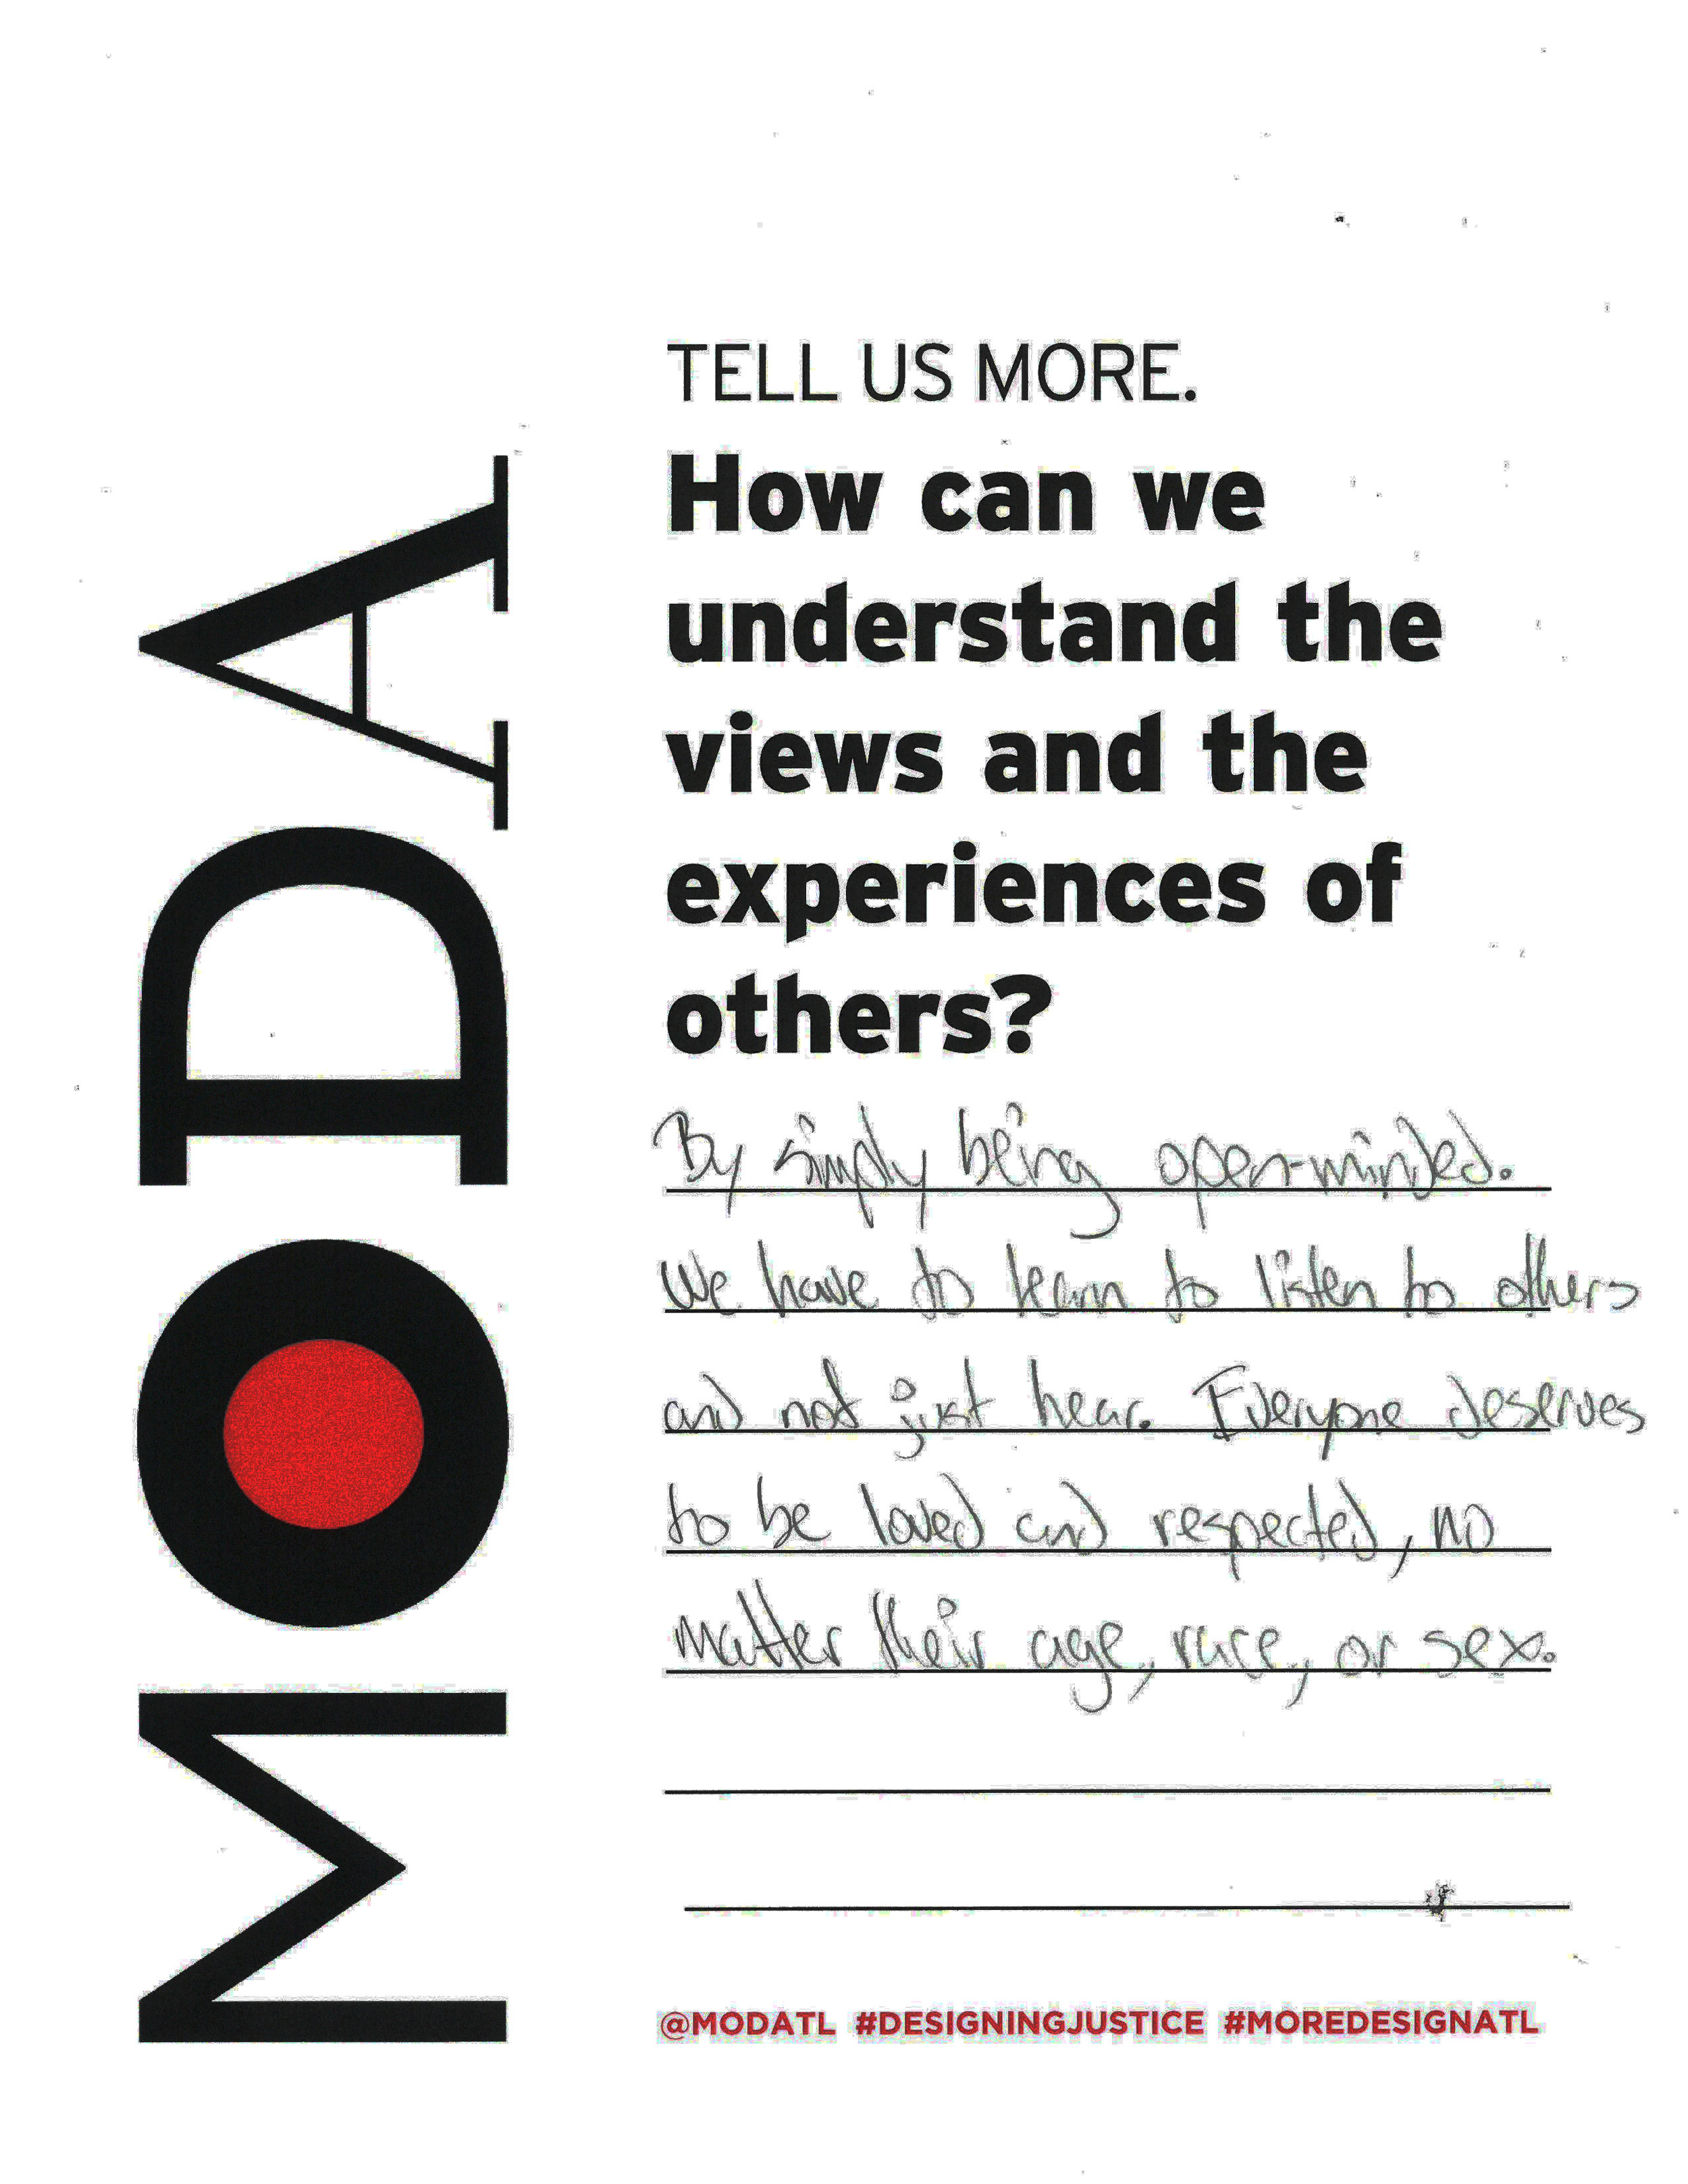 MODA
TELL US MORE.
How can we
understand the
views and the
experiences of
others?
By simply being open-minded.
We have to learn to listen to others
and not just hear. Everyone deserves
to be loved and respected, no
matter their age, race, or sex.
@MODATL #DESIGNINGJUSTICE #MOREDESIGNATL